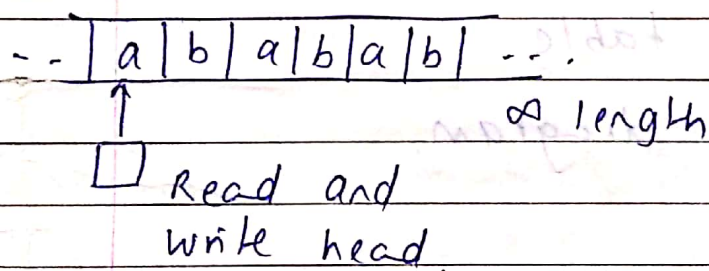 -- | a | b | a | b | a | b | ---.
∞ length
Read and
write head